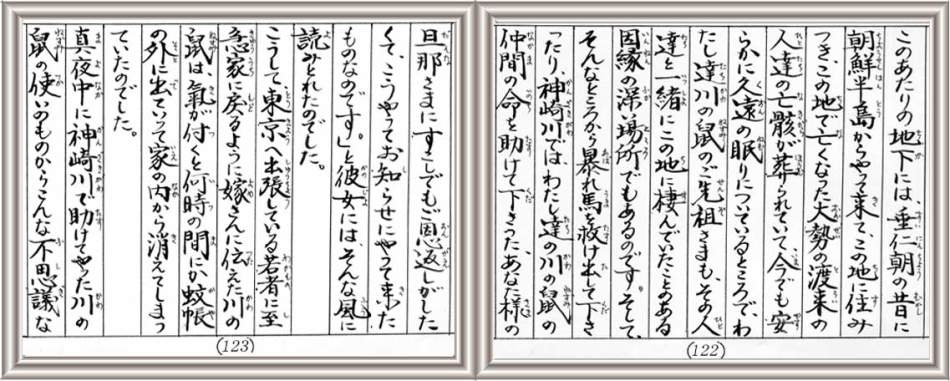 このあたりの地下には、垂仁朝の昔に
朝鮮半島からやって来て、この地に住み
つき、この地で亡くなった大勢の渡来の
人達の亡骸が葬られていて、今でも安
らかに久遠の眠りについているところで、わ
たし達川の鼠のご先祖さまも、その人
達と一緒にこの地に棲んでいたことのある
因縁の深い場所でもあるのです。そして、
そんなところから暴れ馬を救け出して下さ
ったり神崎川では、わたし達の川の鼠の
仲間の命を助けて下さった、あなた様の
(122)
旦那さまにすこしでもご恩返しがした
くて、こうやってお知らせにやって来た
ものなのです。」と彼女には、そんな風に
読みとれたのでした。
こうして東京へ出張している若者に至
急家に戻るように嫁さんに伝えた川の
鼠は、氣が付くと何時の間にか蚊帳
の外に出ていって家の内から消えてしまっ
ていたのでした。
真夜中に神崎川で助けてやった川の
鼠の使いのものからこんな不思議な
(123)